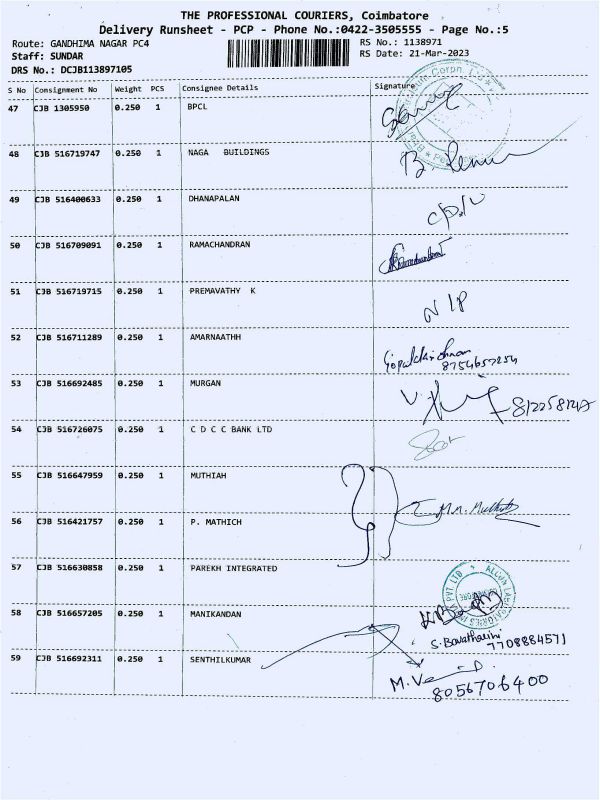 THE PROFESSIONAL COURIERS, Coimbatore
Delivery Runsheet - PCP - Phone No.:0422-3505555 - Page No.:5
Route: GANDHIMA NAGAR PC4
RS No.: 1138971
Staff: SUNDAR
RS Date: 21-Mar-2023
DRS No.: DCJB113897105
S No Consignment No Weight PCS Consignee Details Signature
47 CJB 1305950 0.250 1 BPCL
48 CJB 516719747 0.250 1 NAGA BUILDINGS
49 CJB 516400633 0.250 1 DHANAPALAN
50 CJB 516709091 0.250 1 RAMACHANDRAN
51 CJB 516719715 0.250 1 PREMAVATHY K N/P
52 CJB 516711289 0.250 1 AMARNAATHH
Gopalakrishnan
8754657254
53 CJB 516692485 0.250 1 MURGAN
54 CJB 516726075 0.250 1 C D C C BANK LTD
55 CJB 516647959 0.250 1 MUTHIAH
56 CJB 516421757 0.250 1 P. MATHICH
57 CJB 516630858 0.250 1 PAREKH INTEGRATED
58 CJB 516657205 0.250 1 MANIKANDAN
7708884571
59 CJB 516692311 0.250 1 SENTHILKUMAR
8056706400